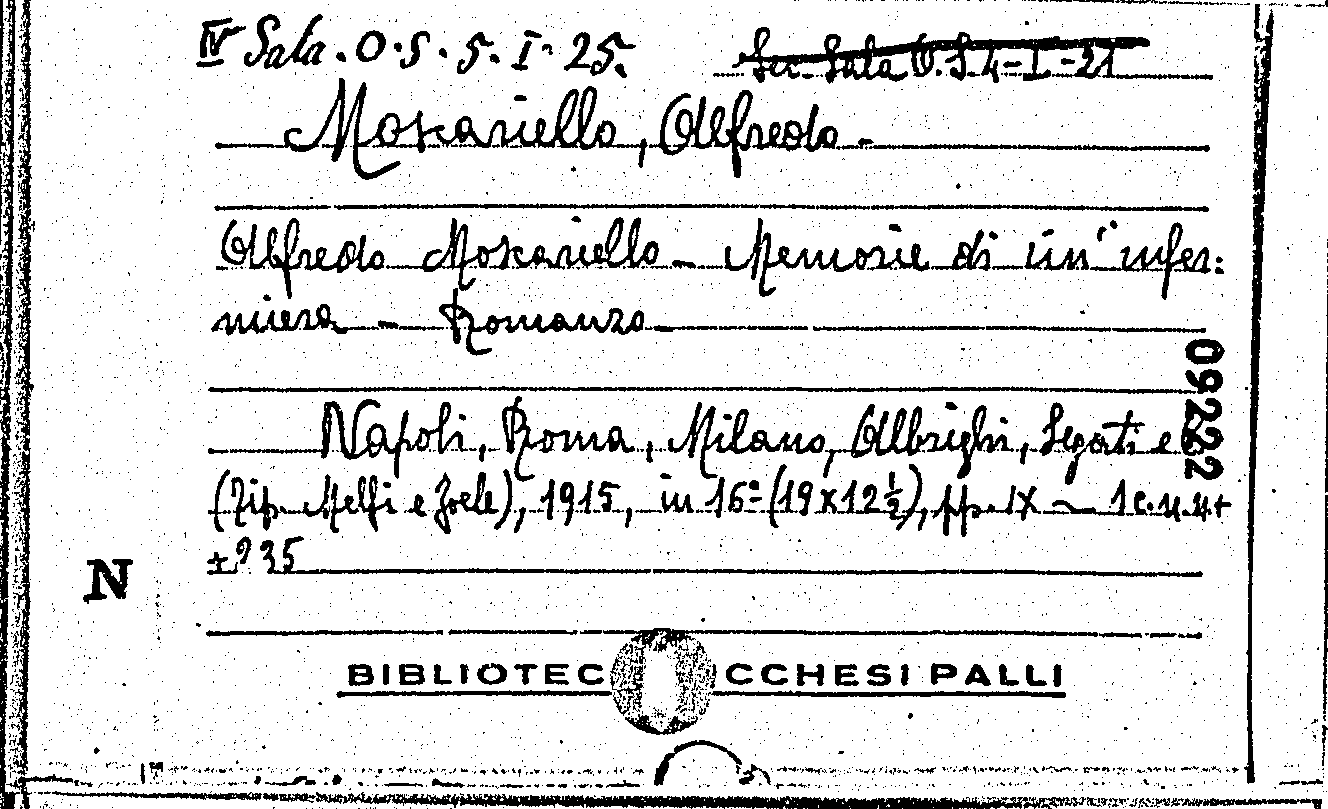 IV Sala. O.S. 5. I. 25.
Sec. Sala O.S. 4-I-21
Moscariello, Alfredo -
Alfredo Moscariello - Memorie di un' infer:
miera - Romanzo -
Napoli, Roma, Milano, Albrighi, Segati e
(Tip. Melfi e Joele), 1915, in 16º (19x12½), pp. IX - 1 c.n.n. +
+ 235
09222
N
BIBLIOTEC CCHESI PALLI